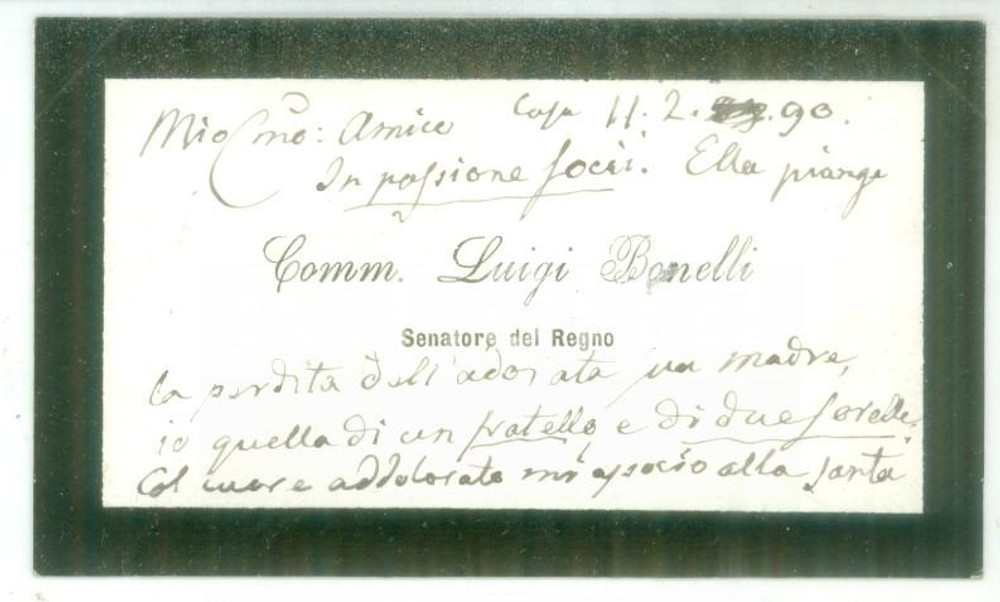 Mio Cmo: Amico Casa 11. 2. 90.
In passione socii. Ella piange
Comm. Luigi Bonelli
Senatore del Regno
la perdita dell'adorata sua madre,
io quella di un fratello e di due sorelle.
Col cuore addolorato mi associo alla santa